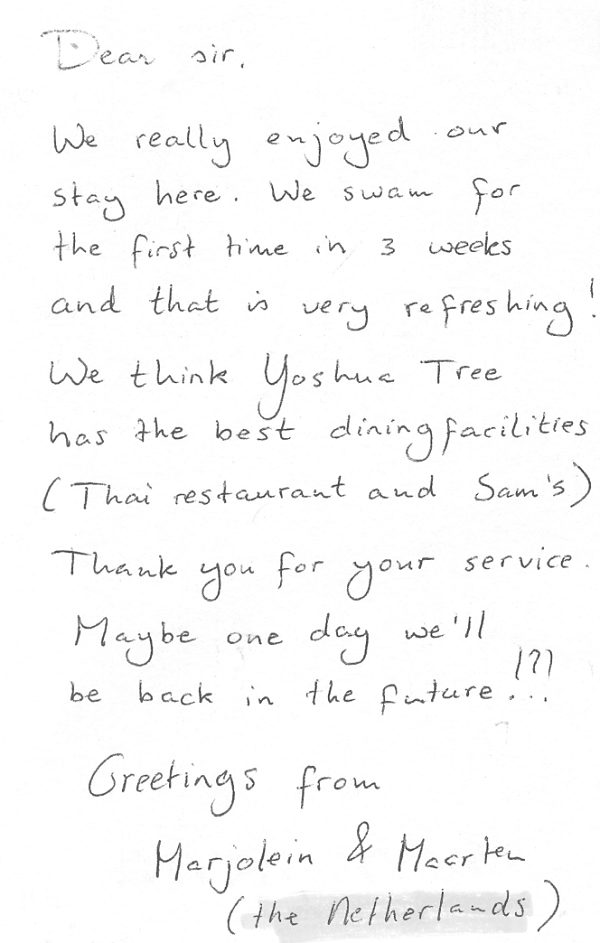 Dear sir,
We really enjoyed our
stay here. We swam for
the first time in 3 weeks
and that is very refreshing!
We think Yoshua Tree
has the best dining facilities
(Thai restaurant and Sam's)
Thank you for your service.
Maybe one day we'll
be back in the future!?!...
Greetings from
Marjolein & Maarten
(the Netherlands)